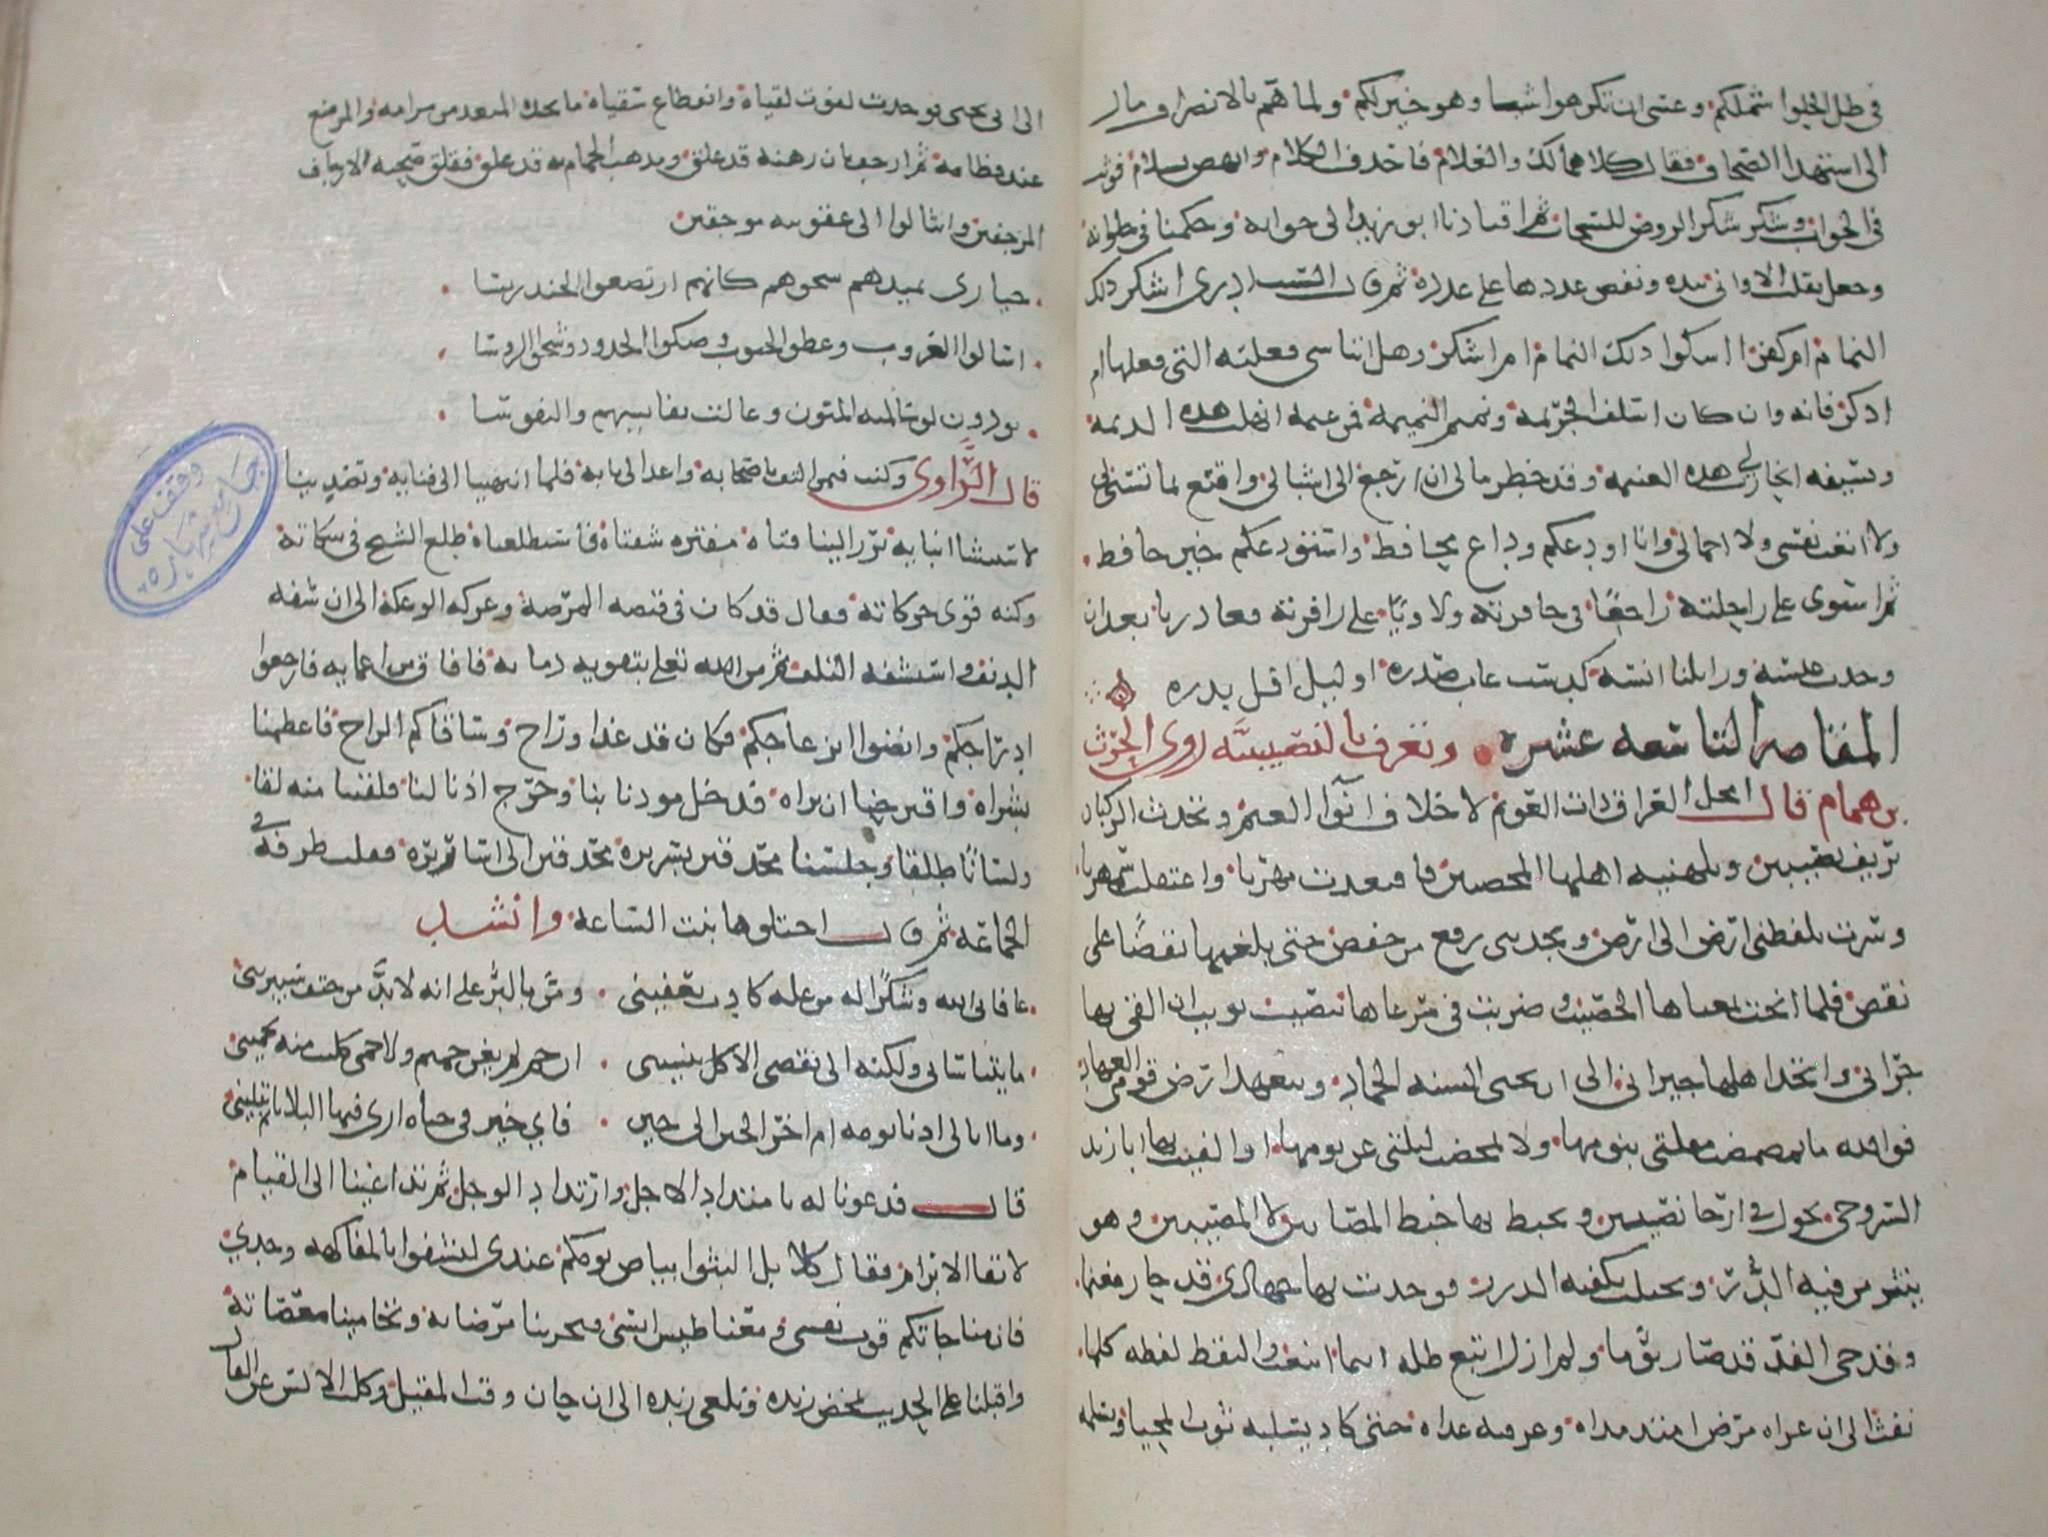 في ظل الحلوا شملكم وعسى ان تكرهوا شيا وهو خير لكم ولما هم بالانصراف مال
الى استهدا الصحاف فقال كلاهما لك والغلام فاحذف الكلام وانهض بسلام فوثب
في الجواب وشكر شكر الروض للسحاب ثم اقتادنا ابو زيد الى حوايه وحكمنا في حلوايه
وجعل يقلب الاواني بيده ونفض عددها على عدده ثم قال لست ادري اشكر ذلك
النمام ام اكفر ااشكوا ذلك النمام ام اشكر وهل اتناسى فعلته التي فعلها ام
اذكر فانه وان كان اسلف الجريمه ونمنم النميمه فمن غيمه انهلت هذه الديمه
وبسيفه انحازت لي هذه الغنيمه وقد خطر ببالي ان ارجع الى اشبالي واقنع بما تسنى لي
ولا اتعب نفسي ولا اجمالي وانا اودعكم وداع محافظ واستودعكم خير حافظ
ثم استوى على راحلته راجعا في حافرته ولاويا على زافرته فغادرنا بعد ان
وخدت عنسه وزايلنا انسه كدست غاب صدره او ليل افل بدره
المقامه التاسعه عشره وتعرف بالنصيبيه روى الحرث
بن همام قال امحل العراق ذات العويم لاخلاف انوا الغيم وتحدث الركبان
بريف نصيبين وبلهنيه اهلها المخصبين فاقتعدت مهريا واعتقلت سمهريا
وسرت تلفظني ارض الى ارض ويجذبني رفع من خفض حتى بلغتها نقضا على
نقض فلما انخت بمغناها الخصيب وضربت في مرعاها بنصيب نويت ان القي بها
جراني واتخذ اهلها جيراني الى ان تحيى السنه الجماد وتتعهد ارض قومي العهاد
فوالله ما تمضمضت مقلتي بنومها ولا تمخضت ليلتي عن يومها او الفيت بها ابا زيد
السروجي يجول في ارجا نصيبين ويخبط بها خبط المصابين والمصيبين وهو
ينثر من فيه الدرر ويحتلب بكفيه الدرر فوجدت بها جهادي قد حاز مغنما
وقدحي الفذ قد صار توما ولم ازل اتبع ظله اينما انبعث والتقط لفظه كلما
نفث الى ان عراه مرض امتد مداه وعرقته مداه حتى كاد يسلبه ثوب المحيا ويسلمه
الى ابي يحيى فوجدت لفوت لقياه وانقطاع سقياه ما يجده المبعد من مرامه والمرضع
عند فطامه ثم ارجف بان رهنه قد غلق ومخلب الحمام به قد علق فقلق صحبه لارجاف
المرجفين وانثالوا الى عقوته موجفين
حيارى يميد بهم شجوهم كانهم ارتضعوا الخندريسا
اسالوا الغروب وعطوا الجيوب وصكوا الخدود وشجوا الروسا
يودون لو سالمته المنون وغالت نفايسهم والنفوسا
قال الراوي وكنت فيمن التف باصحابه واغذ الى بابه فلما انتهينا الى فنايه وتصدينا
لاستنشا انبايه برز الينا فتاه مفتره شفتاه فاستطلعناه طلع الشيخ في شكاته
وكنه قوى حركاته فقال قد كان في قبضه المرضه وعركه الوعكه الى ان شفه
الدنف واستشفه التلف ثم من الله تعلى بتقويه ذمايه فافاق من اغمايه فارجعوا
ادراجكم وانضوا انزعاجكم فكان قد غدا وراح وساقاكم الراح فاعظمنا
بشراه واقترحنا ان نراه فدخل موذنا بنا وخرج اذنا لنا فلقينا منه لقا
ولسانا طلقا وجلسنا محدقين بسريره محدقين الى اساريره فقلب طرفه في
الجماعه ثم قال اجتلوها بنت الساعه وانشد
عافاني الله وشكرا له من عله كادت تعفيني ومن بالبر على انه لابد من حتف سيبريني
ما يتناساني ولكنه الى تقضي الاكل ينسيني ان حم لم يغن حميم ولا حمى كليب منه يحميني
وما ابالي ادنا يومه ام اخر الحين الى حين فاي خير في حياه ارى فيها البلايا ثم تبليني
قال فدعونا له بامتداد الاجل وارتداد الوجل ثم تداعينا الى القيام
لاتقا الابرام فقال كلا بل البثوا بياض يومكم عندي لتشفوا بالمفاكهه وجدي
فان مناجاتكم قوت نفسي ومغناطيس انسي فتحرينا مرضاته وتحامينا معاصاته
واقبلنا على الحديث نمخض زبده ونلغي زبده الى ان حان وقت المقيل وكلت الالسن عن القال
وقف على
جامع شهاره